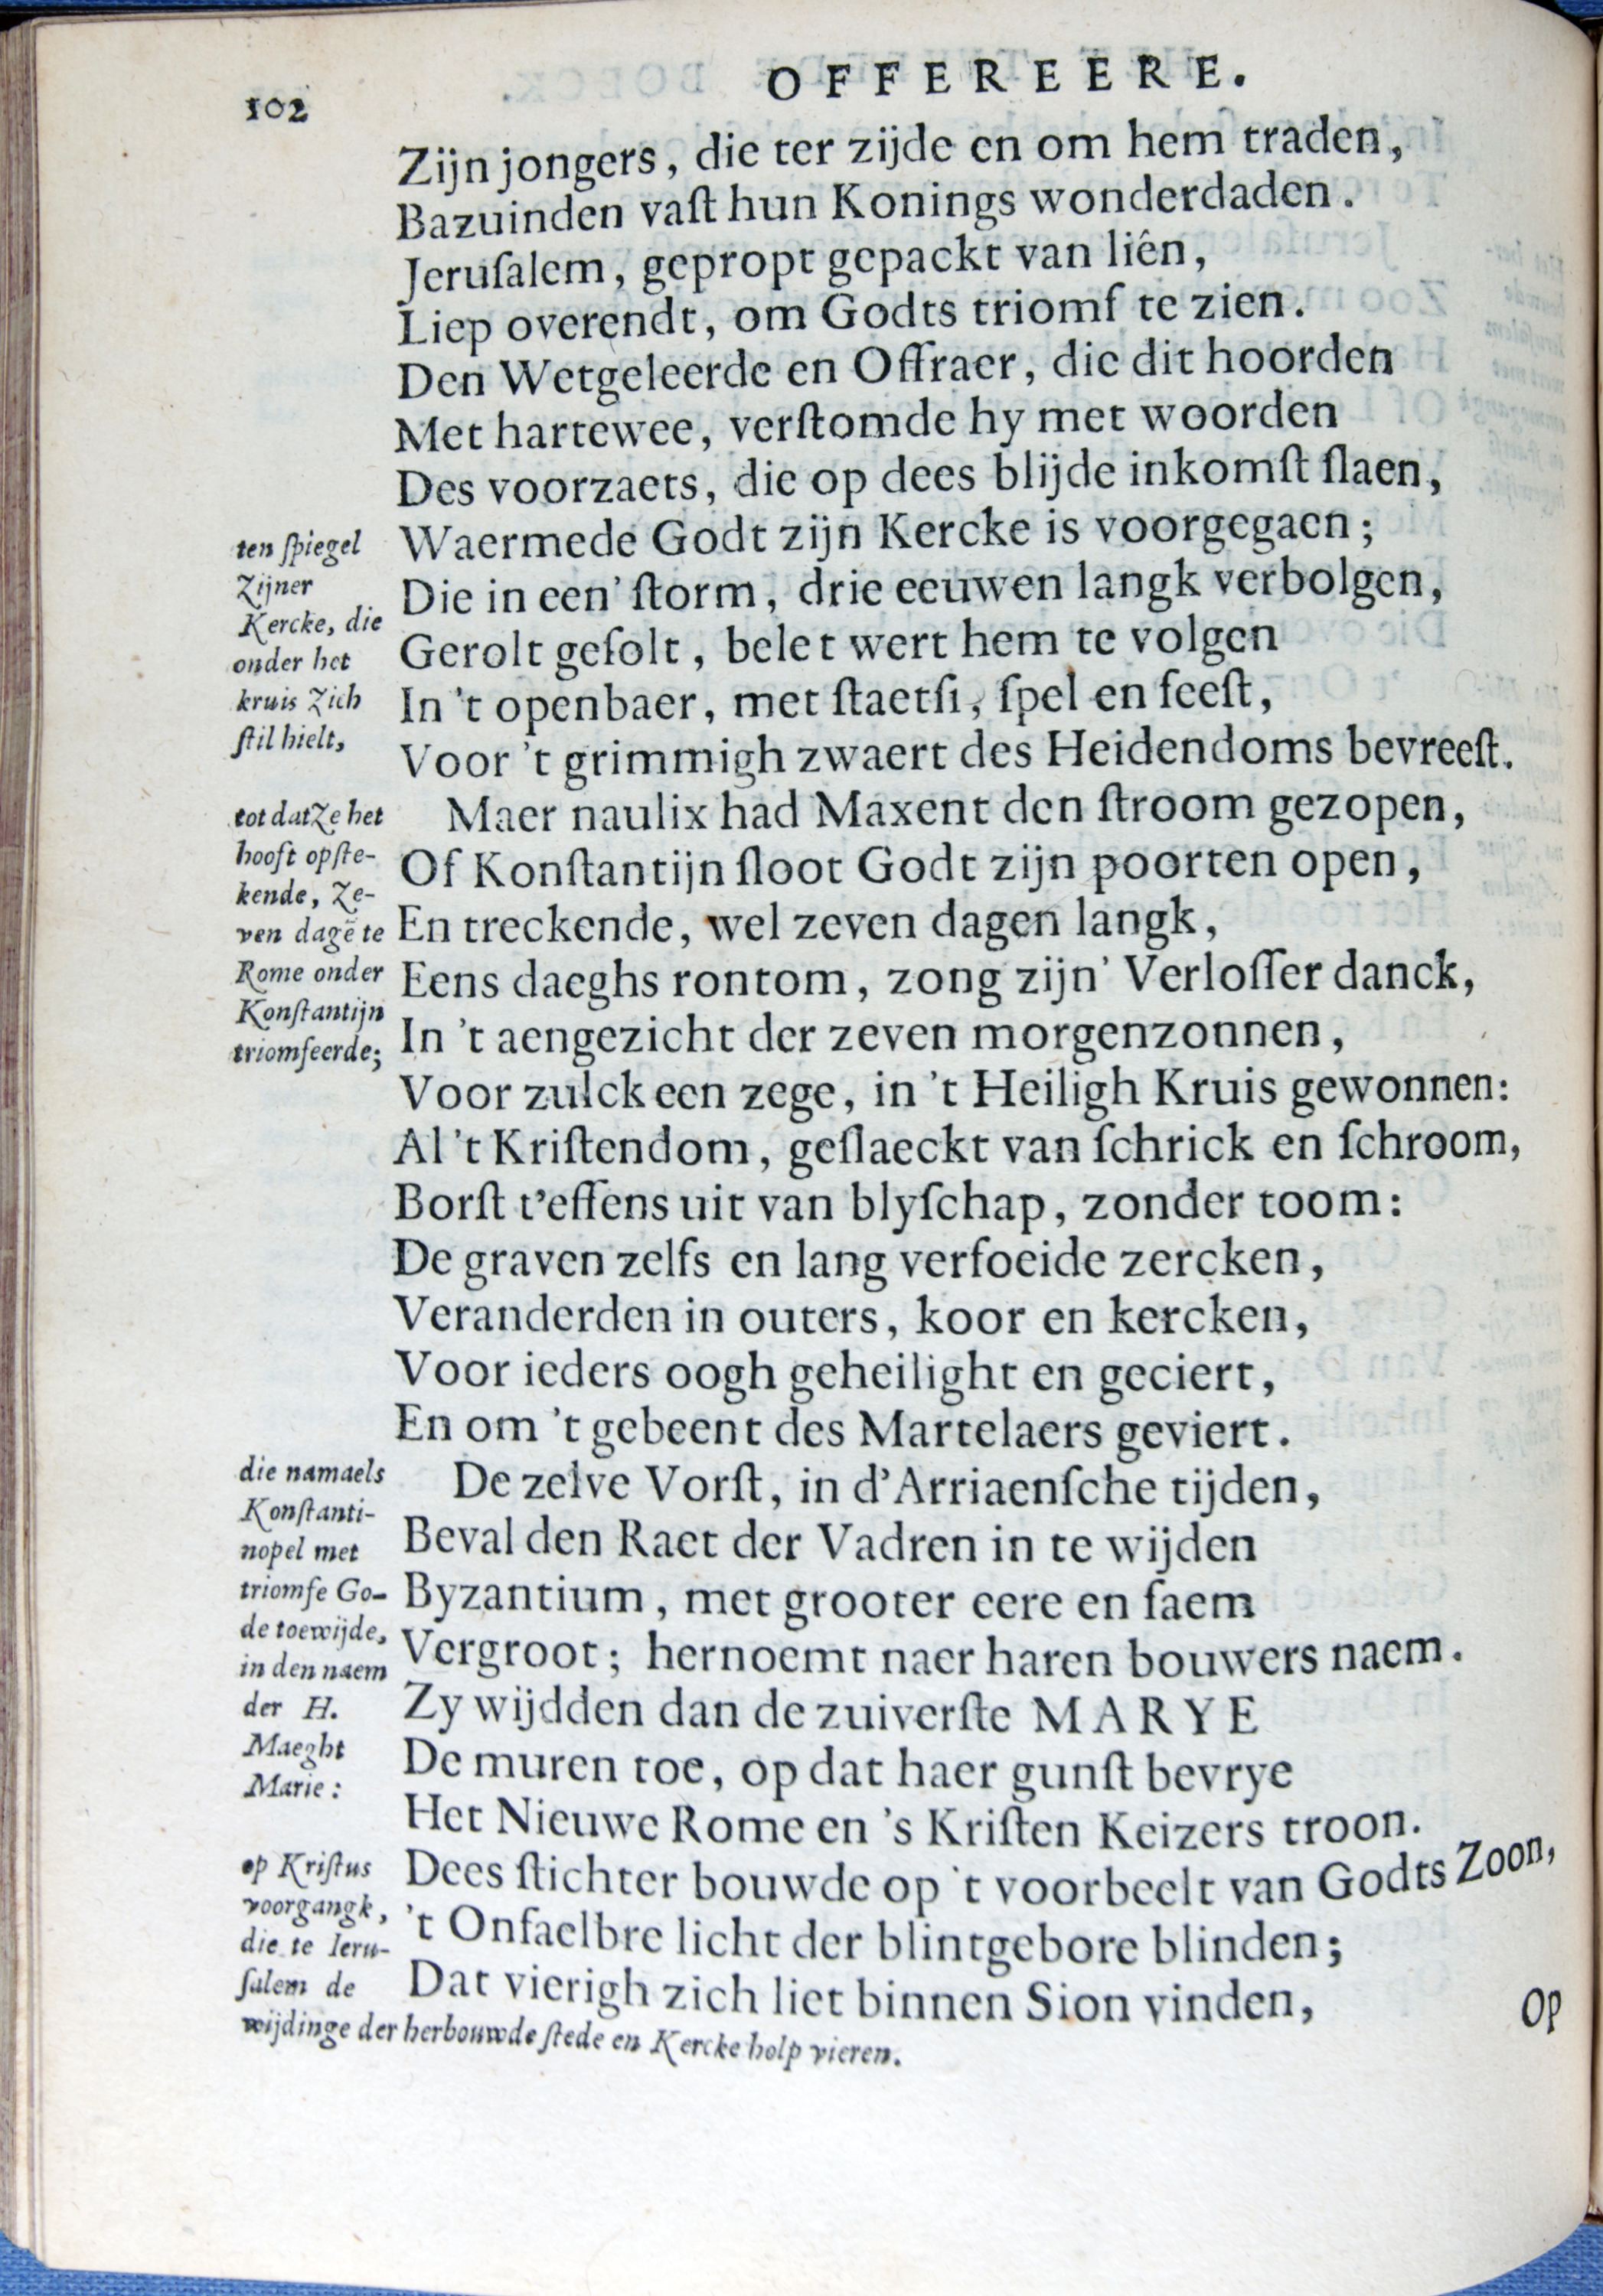 102
OFFEREERE.
Zijn jongers, die ter zijde en om hem traden,
Bazuinden vaſt hun Konings wonderdaden.
Jeruſalem, gepropt gepackt van liên,
Liep overendt, om Godts triomf te zien.
Den Wetgeleerde en Offraer, die dit hoorden
Met hartewee, verſtomde hy met woorden
Des voorzaets, die op dees blijde inkomſt ſlaen,
Waermede Godt zijn Kercke is voorgegaen;
Die in een' ſtorm, drie eeuwen langk verbolgen,
Gerolt geſolt, belet wert hem te volgen
In 't openbaer, met ſtaetſi, ſpel en feeſt,
Voor 't grimmigh zwaert des Heidendoms bevreeſt.
ten ſpiegel
zijner
Kercke, die
onder het
kruis zich
ſtil hielt,
Maer naulix had Maxent den ſtroom gezopen,
Of Konſtantijn ſloot Godt zijn poorten open,
En treckende, wel zeven dagen langk,
Eens daeghs rontom, zong zijn' Verloſſer danck,
In 't aengezicht der zeven morgenzonnen,
Voor zulck een zege, in 't Heiligh Kruis gewonnen:
Al 't Kriſtendom, geſlaeckt van ſchrick en ſchroom,
Borſt t'effens uit van blyſchap, zonder toom:
De graven zelfs en lang verfoeide zercken,
Veranderden in outers, koor en kercken,
Voor ieders oogh geheilight en geciert,
En om 't gebeent des Martelaers geviert.
tot datze het
hooft opſte-
kende, ze-
ven dagē te
Rome onder
Konſtantijn
triomfeerde;
De zelve Vorſt, in d'Arriaenſche tijden,
Beval den Raet der Vadren in te wijden
Byzantium, met grooter eere en faem
Vergroot; hernoemt naer haren bouwers naem.
Zy wijdden dan de zuiverſte MARYE
De muren toe, op dat haer gunſt bevrye
Het Nieuwe Rome en 's Kriſten Keizers troon.
Dees ſtichter bouwde op 't voorbeelt van Godts Zoon,
't Onfaelbre licht der blintgebore blinden;
Dat vierigh zich liet binnen Sion vinden,
die namaels
Konſtanti-
nopel met
triomfe Go-
de toewijde,
in den naem
der H.
Maeght
Marie:
op Kriſtus
voorgangk,
die te Ieru-
ſalem de
wijdinge der herbouwde ſtede en Kercke holp vieren.
Op